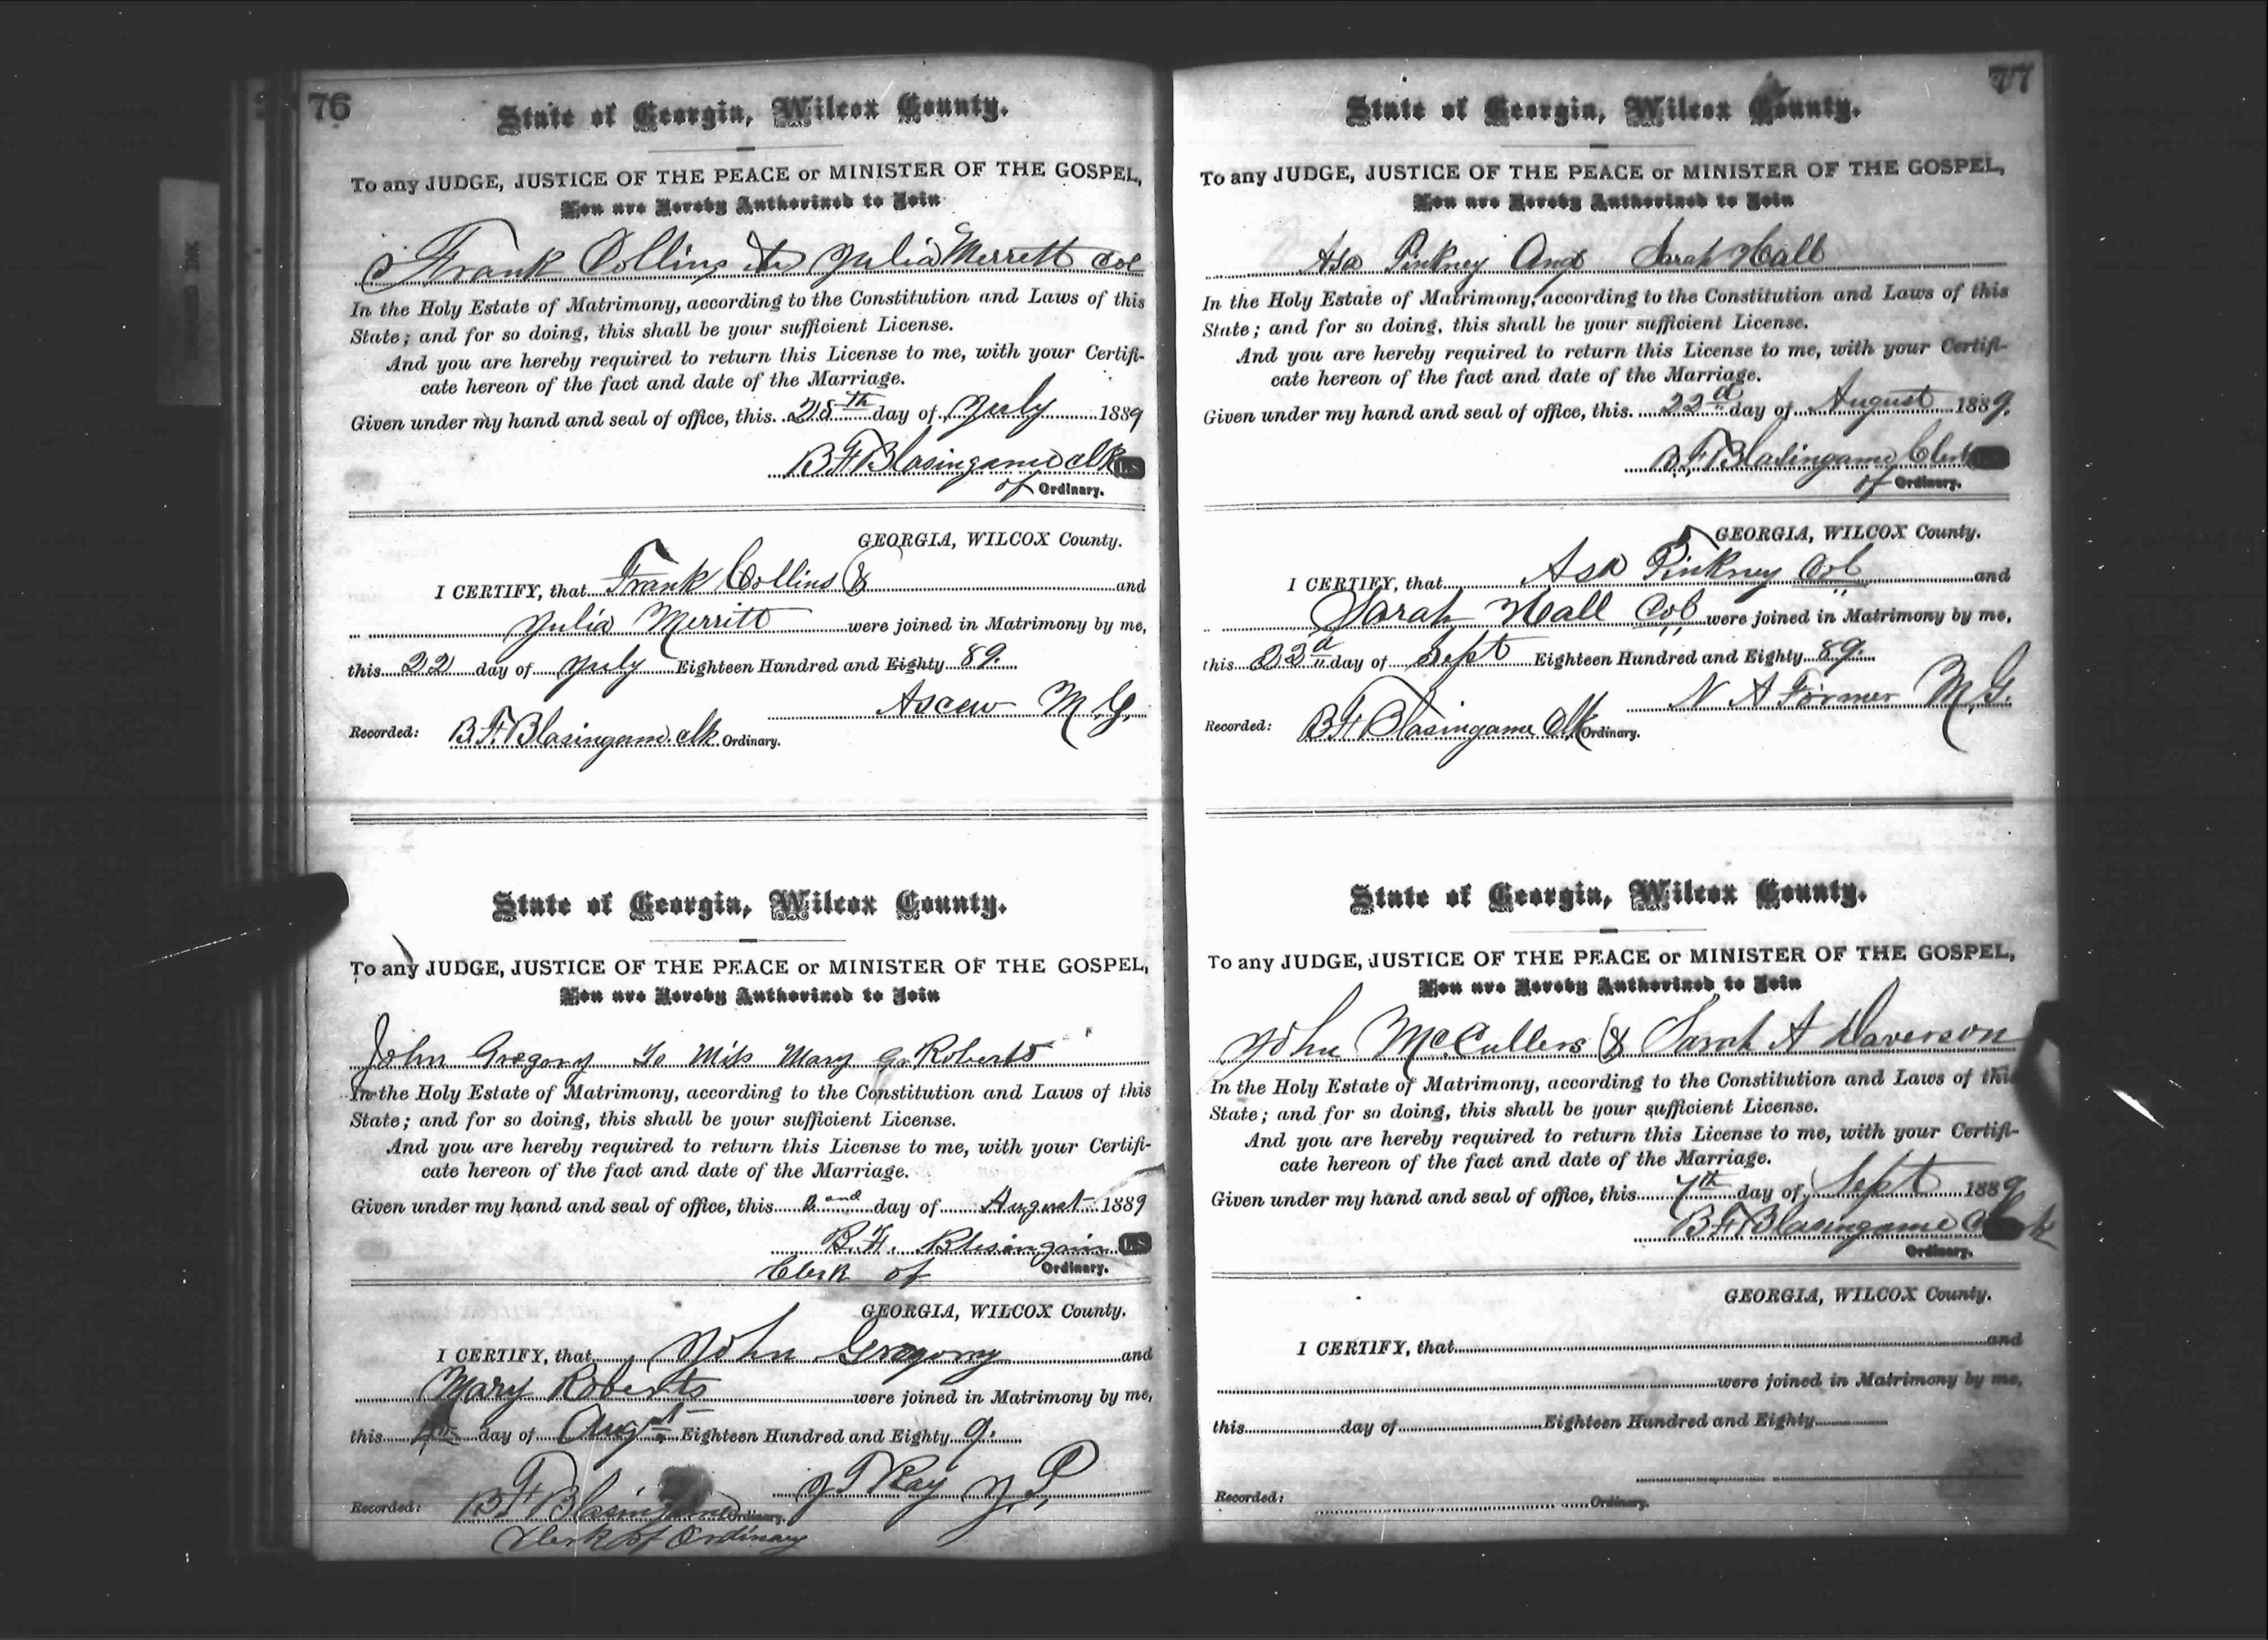 76
State of Georgia, Wilcox County.
To any JUDGE, JUSTICE OF THE PEACE or MINISTER OF THE GOSPEL,
You are Hereby Authorized to Join
Frank Collins to Julia Merrett Col
In the Holy Estate of Matrimony, according to the Constitution and Laws of this
State; and for so doing, this shall be your sufficient License.
And you are hereby required to return this License to me, with your Certifi-
cate hereon of the fact and date of the Marriage.
Given under my hand and seal of office, this 28th day of July 1889
B F Blasingame clk LS
of Ordinary.
GEORGIA, WILCOX County.
I CERTIFY, that Frank Collins & and
Julia Merritt were joined in Matrimony by me,
this 22 day of July Eighteen Hundred and Eighty 89.
Ascew M.G.
Recorded: B.F. Blasingame clk Ordinary.
State of Georgia, Wilcox County.
To any JUDGE, JUSTICE OF THE PEACE or MINISTER OF THE GOSPEL,
You are Hereby Authorized to Join
John Gregory To Miss Mary G. Roberts
In the Holy Estate of Matrimony, according to the Constitution and Laws of this
State; and for so doing, this shall be your sufficient License.
And you are hereby required to return this License to me, with your Certifi-
cate hereon of the fact and date of the Marriage.
Given under my hand and seal of office, this 2and day of August 1889
B.F. LS
Clerk of Ordinary.
GEORGIA, WILCOX County.
I CERTIFY, that John Gregory and
Mary Roberts were joined in Matrimony by me,
this 4th day of Augst Eighteen Hundred and Eighty 9.
J T Ray J.P.
Recorded: B F Blasingame Ordinary.
Clerk of Ordinary
77
State of Georgia, Wilcox County.
To any JUDGE, JUSTICE OF THE PEACE or MINISTER OF THE GOSPEL,
You are Hereby Authorized to Join
Asa Pinkney And Sarah Hall
In the Holy Estate of Matrimony, according to the Constitution and Laws of this
State; and for so doing, this shall be your sufficient License.
And you are hereby required to return this License to me, with your Certifi-
cate hereon of the fact and date of the Marriage.
Given under my hand and seal of office, this 22d day of August 1889.
B.F. Blasingame Clerk
of Ordinary.
GEORGIA, WILCOX County.
I CERTIFY, that Asa Pinkney Col and
Sarah Hall Col were joined in Matrimony by me,
this 22d day of Sept Eighteen Hundred and Eighty 89.
N A Former M.G.
Recorded: B F Blasingame Clk Ordinary.
State of Georgia, Wilcox County.
To any JUDGE, JUSTICE OF THE PEACE or MINISTER OF THE GOSPEL,
You are Hereby Authorized to Join
John McCullers & Sarah A Daverson
In the Holy Estate of Matrimony, according to the Constitution and Laws of this
State; and for so doing, this shall be your sufficient License.
And you are hereby required to return this License to me, with your Certifi-
cate hereon of the fact and date of the Marriage.
Given under my hand and seal of office, this 7th day of Sept 1889
B F Blasingame
Ordinary.
GEORGIA, WILCOX County.
I CERTIFY, that and
were joined in Matrimony by me,
this day of Eighteen Hundred and Eighty
Recorded: Ordinary.